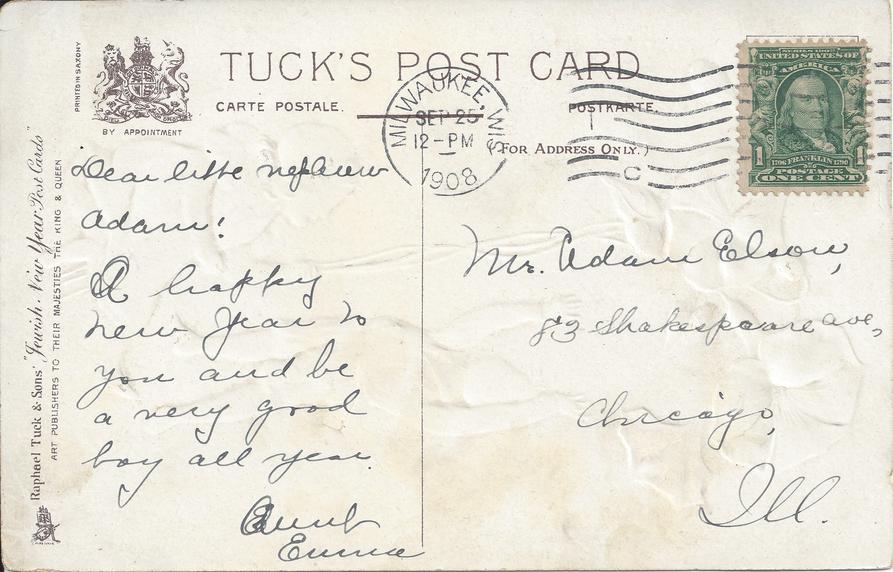 TUCK'S POST CARD
CARTE POSTALE.
POSTKARTE.
(FOR ADDRESS ONLY.)
PRINTED IN SAXONY
BY APPOINTMENT
Raphael Tuck & Sons' "Jewish New Year Post Cards"
ART PUBLISHERS TO THEIR MAJESTIES THE KING & QUEEN
MILWAUKEE, WIS
SEP 25
12-PM
1908
C
SERIES 1902
UNITED STATES OF
AMERICA
1706 FRANKLIN 1790
1 POSTAGE 1
ONE CENT
Dear little nephew
Adam!
A happy
new Year to
you and be
a very good
boy all year.
Aunt
Emma
Mr. Adam Elson,
83 Shakespeare ave,
Chicago,
Ill.